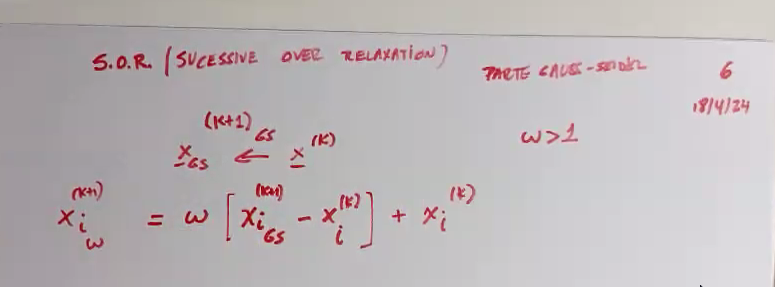 S.O.R. (SUCESSIVE OVER RELAXATION)
PARTE GAUSS-SEIDEL
6
18/4/24
x_GS^(K+1) ←^GS x^(K)
ω>1
x_i_ω^(K+1) = ω [x_i_GS^(K+1) - x_i^(K)] + x_i^(K)